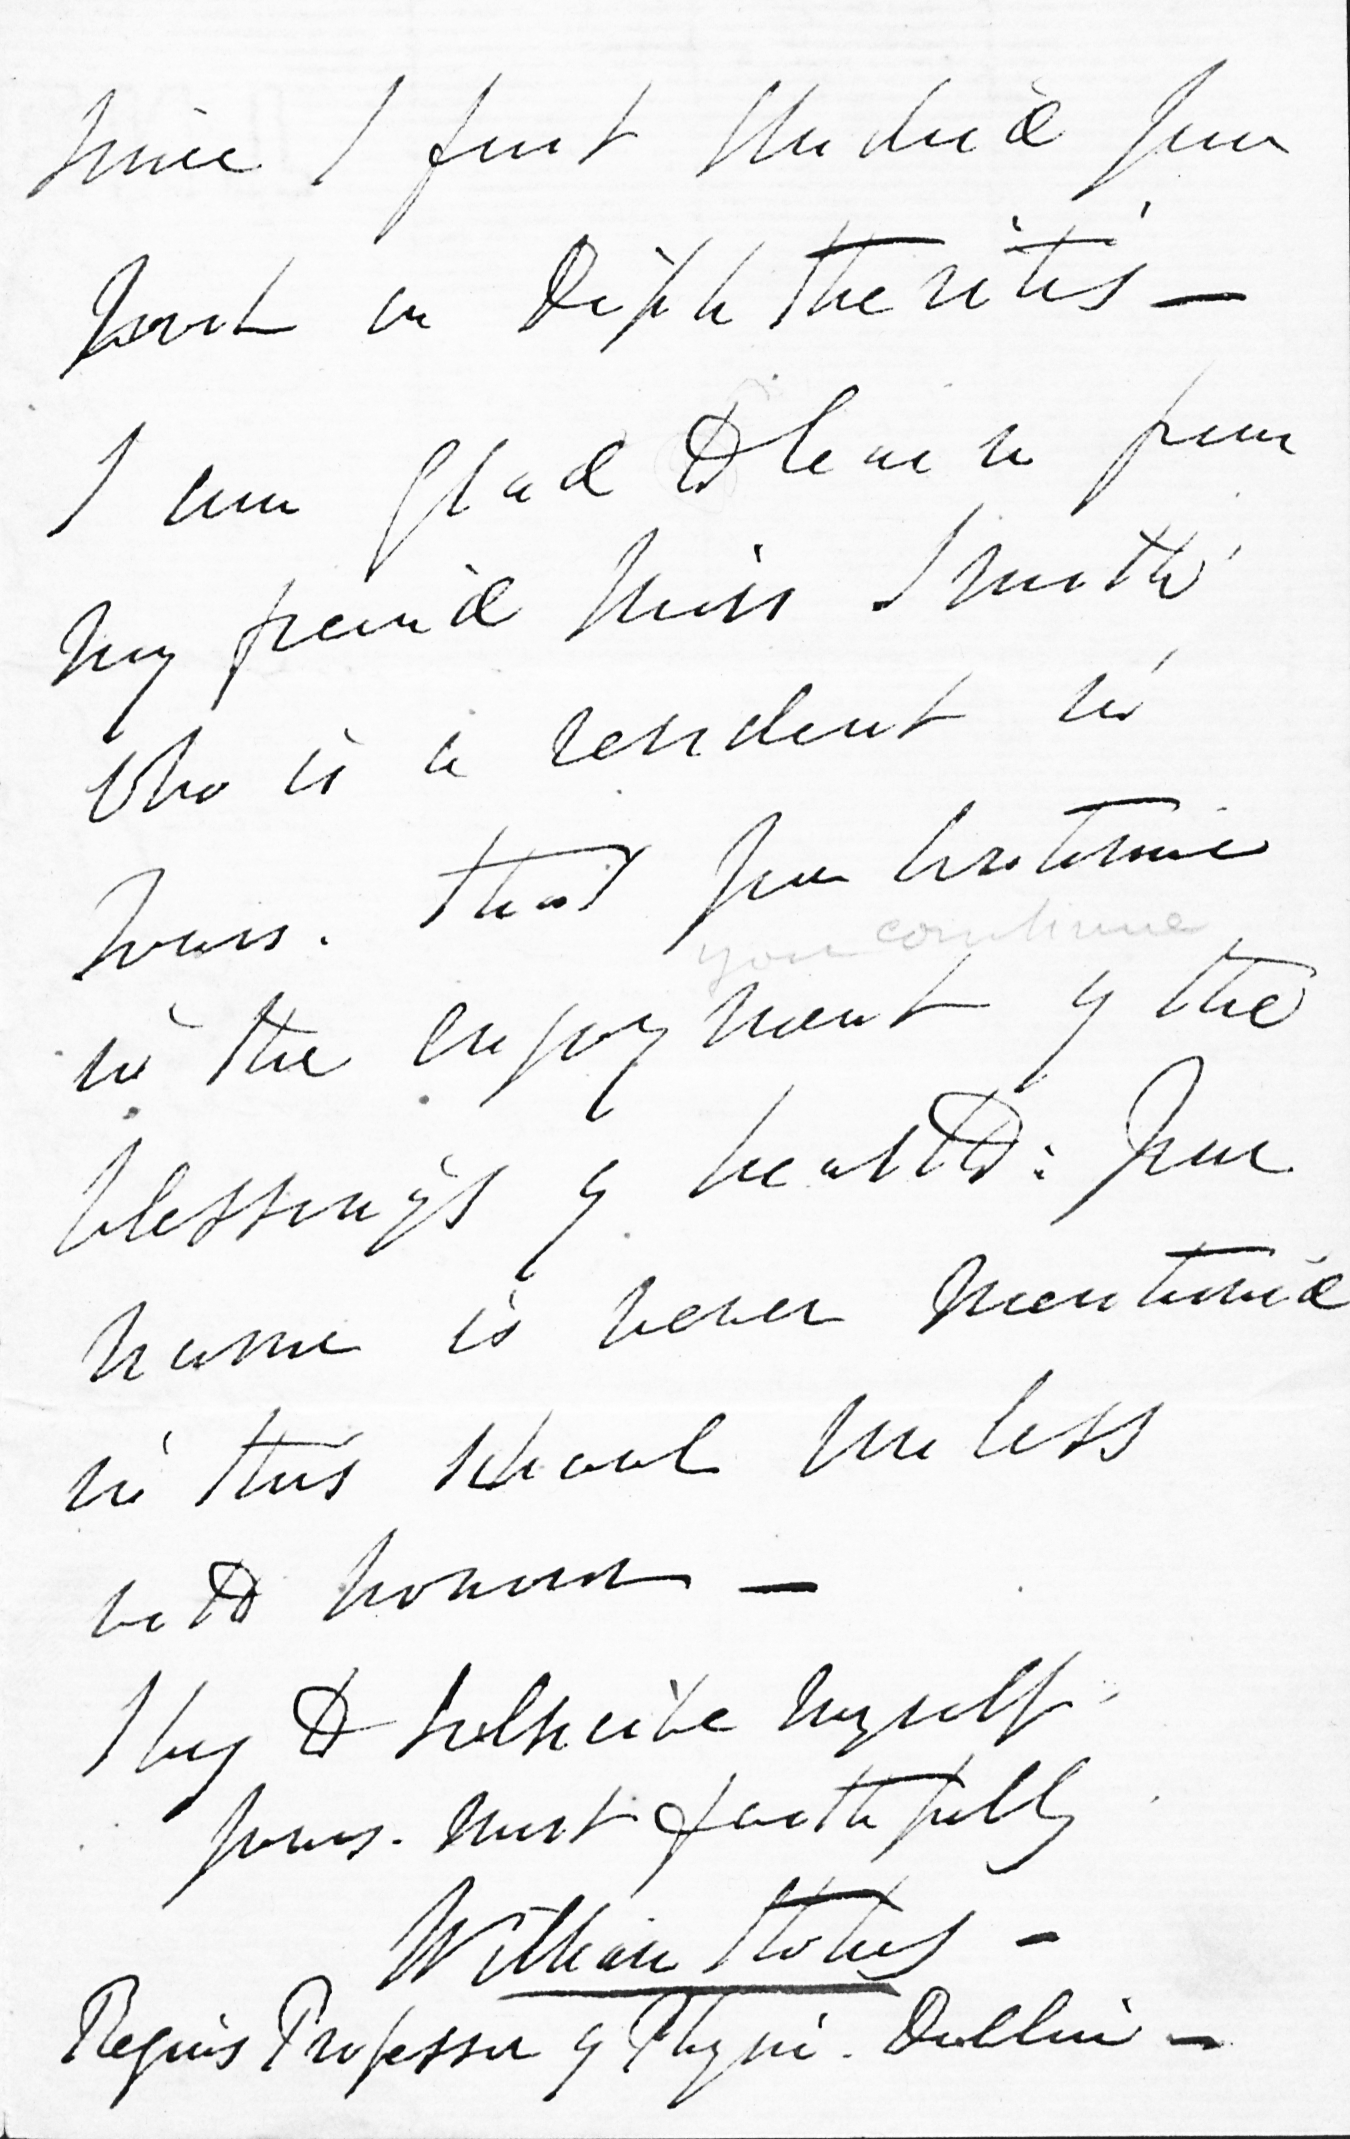 since I first studied your
work on Diphtheritis —
I am glad to learn from
my friend Miss Smith
who is a resident in
Tours. that you continue
you continue
in the enjoyment of the
blessings of health: Your
name is never mentioned
in this school unless
with honour —
I beg to subscribe myself
yours. most faithfully
William Stokes —
Regius Professor of Physic. Dublin —